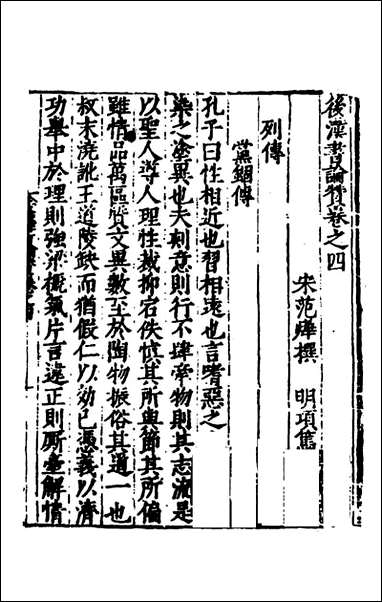 後漢書論贊卷之四
宋范曄撰 明項篤
列傳
黨錮傳
孔子曰性相近也習相遠也言嗜惡之
染之塗異也夫刻意則行不肆牽物則其志流是
以聖人導人理性裁抑宕佚慎其所與節其所偏
雖情品萬區質文異數至於陶物振俗其道一也
叔末澆訛王道陵缺而猶假仁以効己憑義以濟
功舉中於理則強梁褫氣片言違正則厮臺解情